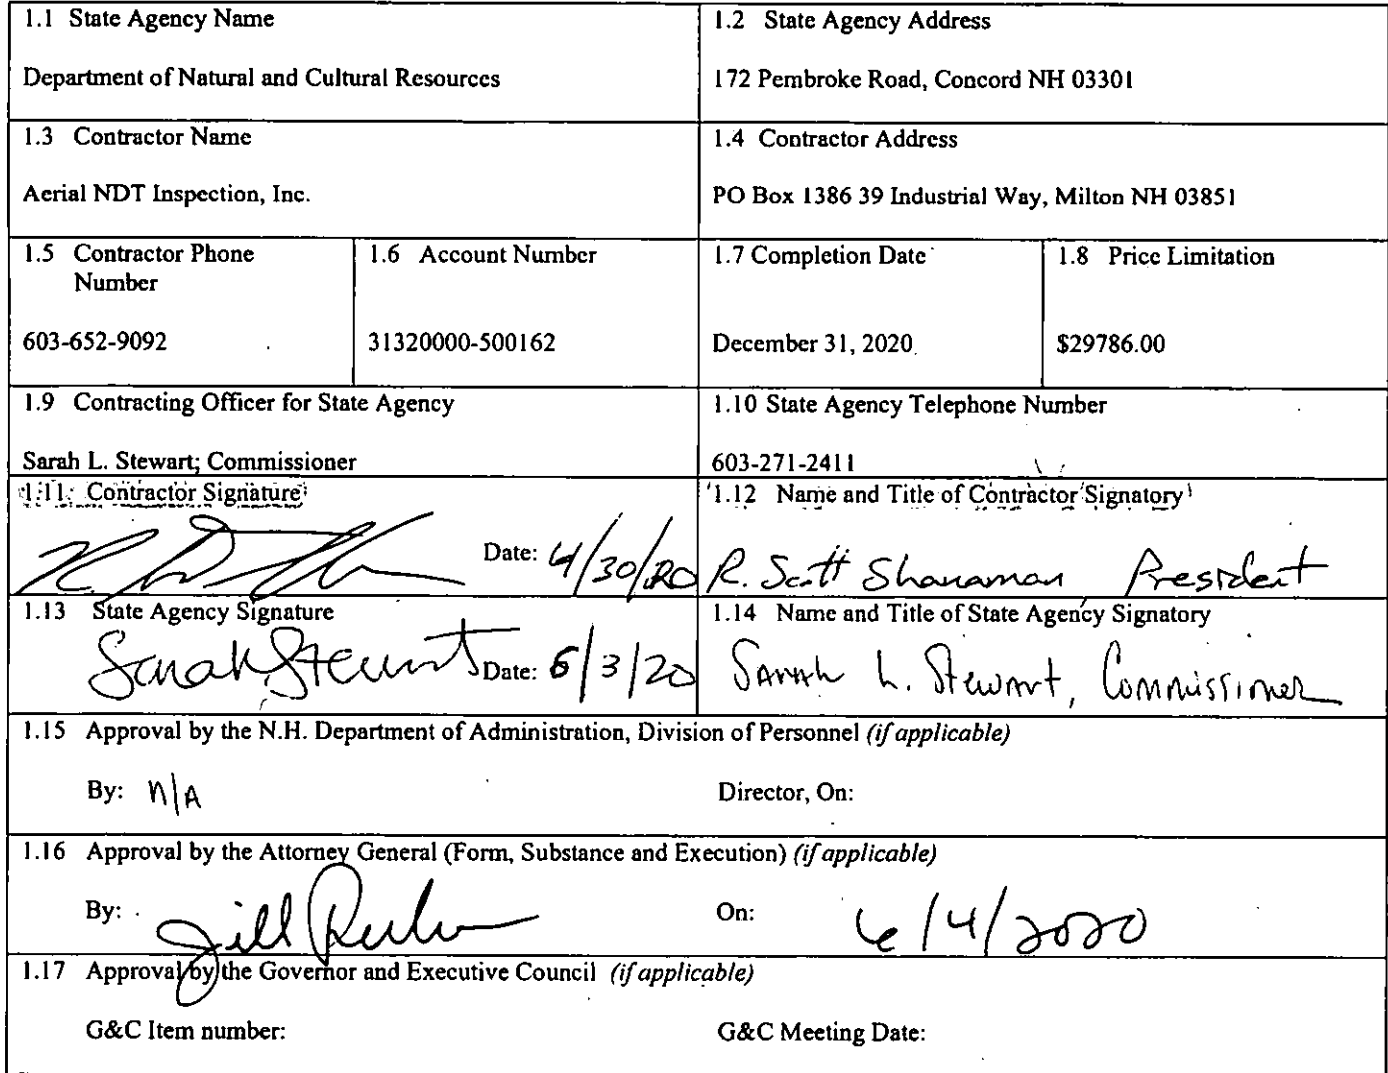 1.1 State Agency Name
Department of Natural and Cultural Resources
1.2 State Agency Address
172 Pembroke Road, Concord NH 03301
1.3 Contractor Name
Aerial NDT Inspection, Inc.
1.4 Contractor Address
PO Box 1386 39 Industrial Way, Milton NH 03851
1.5 Contractor Phone
Number
603-652-9092
1.6 Account Number
31320000-500162
1.7 Completion Date
December 31, 2020
1.8 Price Limitation
$29786.00
1.9 Contracting Officer for State Agency
Sarah L. Stewart; Commissioner
1.10 State Agency Telephone Number
603-271-2411
1.11 Contractor Signature
Date: 4/30/20
1.12 Name and Title of Contractor Signatory
R. Scott Shanaman President
1.13 State Agency Signature
Sarah Stewart Date: 5/3/20
1.14 Name and Title of State Agency Signatory
Sarah L. Stewart, Commissioner
1.15 Approval by the N.H. Department of Administration, Division of Personnel (if applicable)
By: n/A
Director, On:
1.16 Approval by the Attorney General (Form, Substance and Execution) (if applicable)
By: Jill
On: 6/4/2020
1.17 Approval by the Governor and Executive Council (if applicable)
G&C Item number:
G&C Meeting Date: